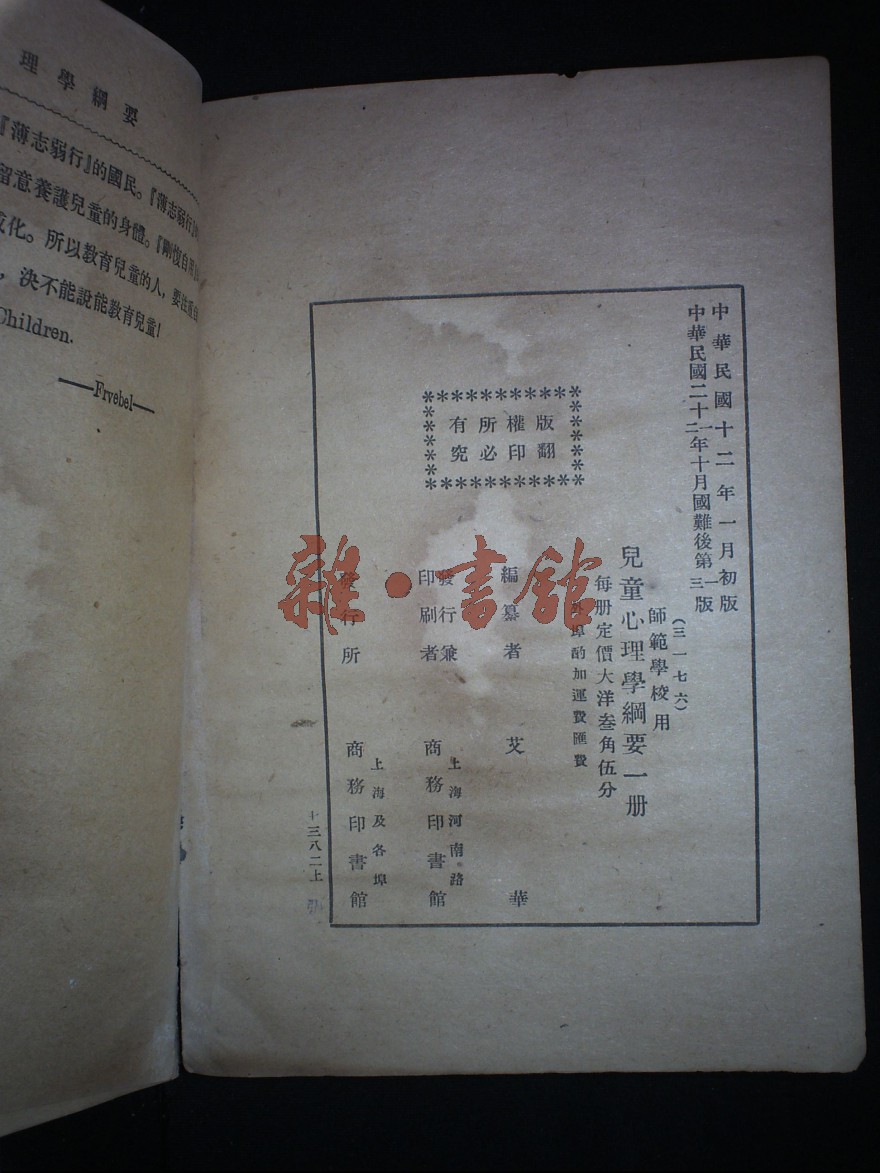 理學綱要
『薄志弱行』的國民。『薄志弱行』
留意養護兒童的身體。『剛愎自用
化。所以教育兒童的人，要注意
，決不能說能教育兒童！
Children.
——Frvebel——
中華民國十二年一月初版
中華民國二十二年十月國難後第一版
三
(三一七六)
師範學校用
兒童心理學綱要一册
每册定價大洋叁角伍分
外埠酌加運費匯費
版權所有
翻印必究
編纂者 艾華
發行兼
印刷者
上海河南路
商務印書館
發行所
上海及各埠
商務印書館
十三八二上
雜·書館